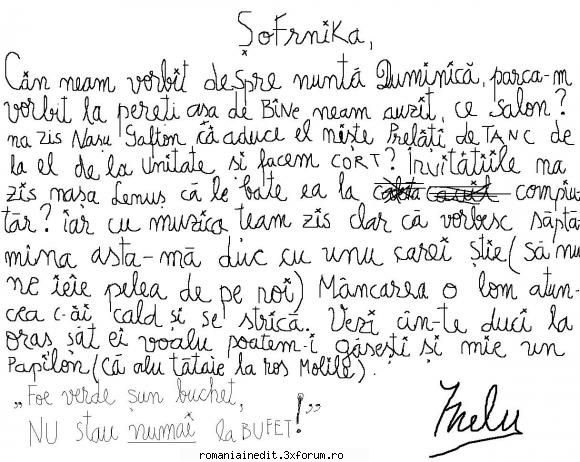 ȘoFrniKa,
Cân neam vorbit despre nuntă Duminică, parca-m
vorbit la pereti asa de Bine neam auzit, ce salon?
na zis Nasu Safton că aduce el niște Prelăți de TANC de
la el de la Unitate și facem CORT? Invitățiile ma
zis nașa Lenuș că le bate ea la compiu
tăr? iar cu muzica team zis clar că vorbesc săptă
mina asta-mă duc cu unu carei știe (să nu
ne ieie pelea de pe noi) Mâncarea o lom atun-
cea c-ăi cald și se strică. Vezi cîn-te duci la
oraș săt ei voalu poatem-i găsești și mie un
Papilon (că alu tătaie la ros Molile).
„Foe verde șun buchet,
NU stau numai la BUFET!”
Inelu
romaniainedit.3xforum.ro